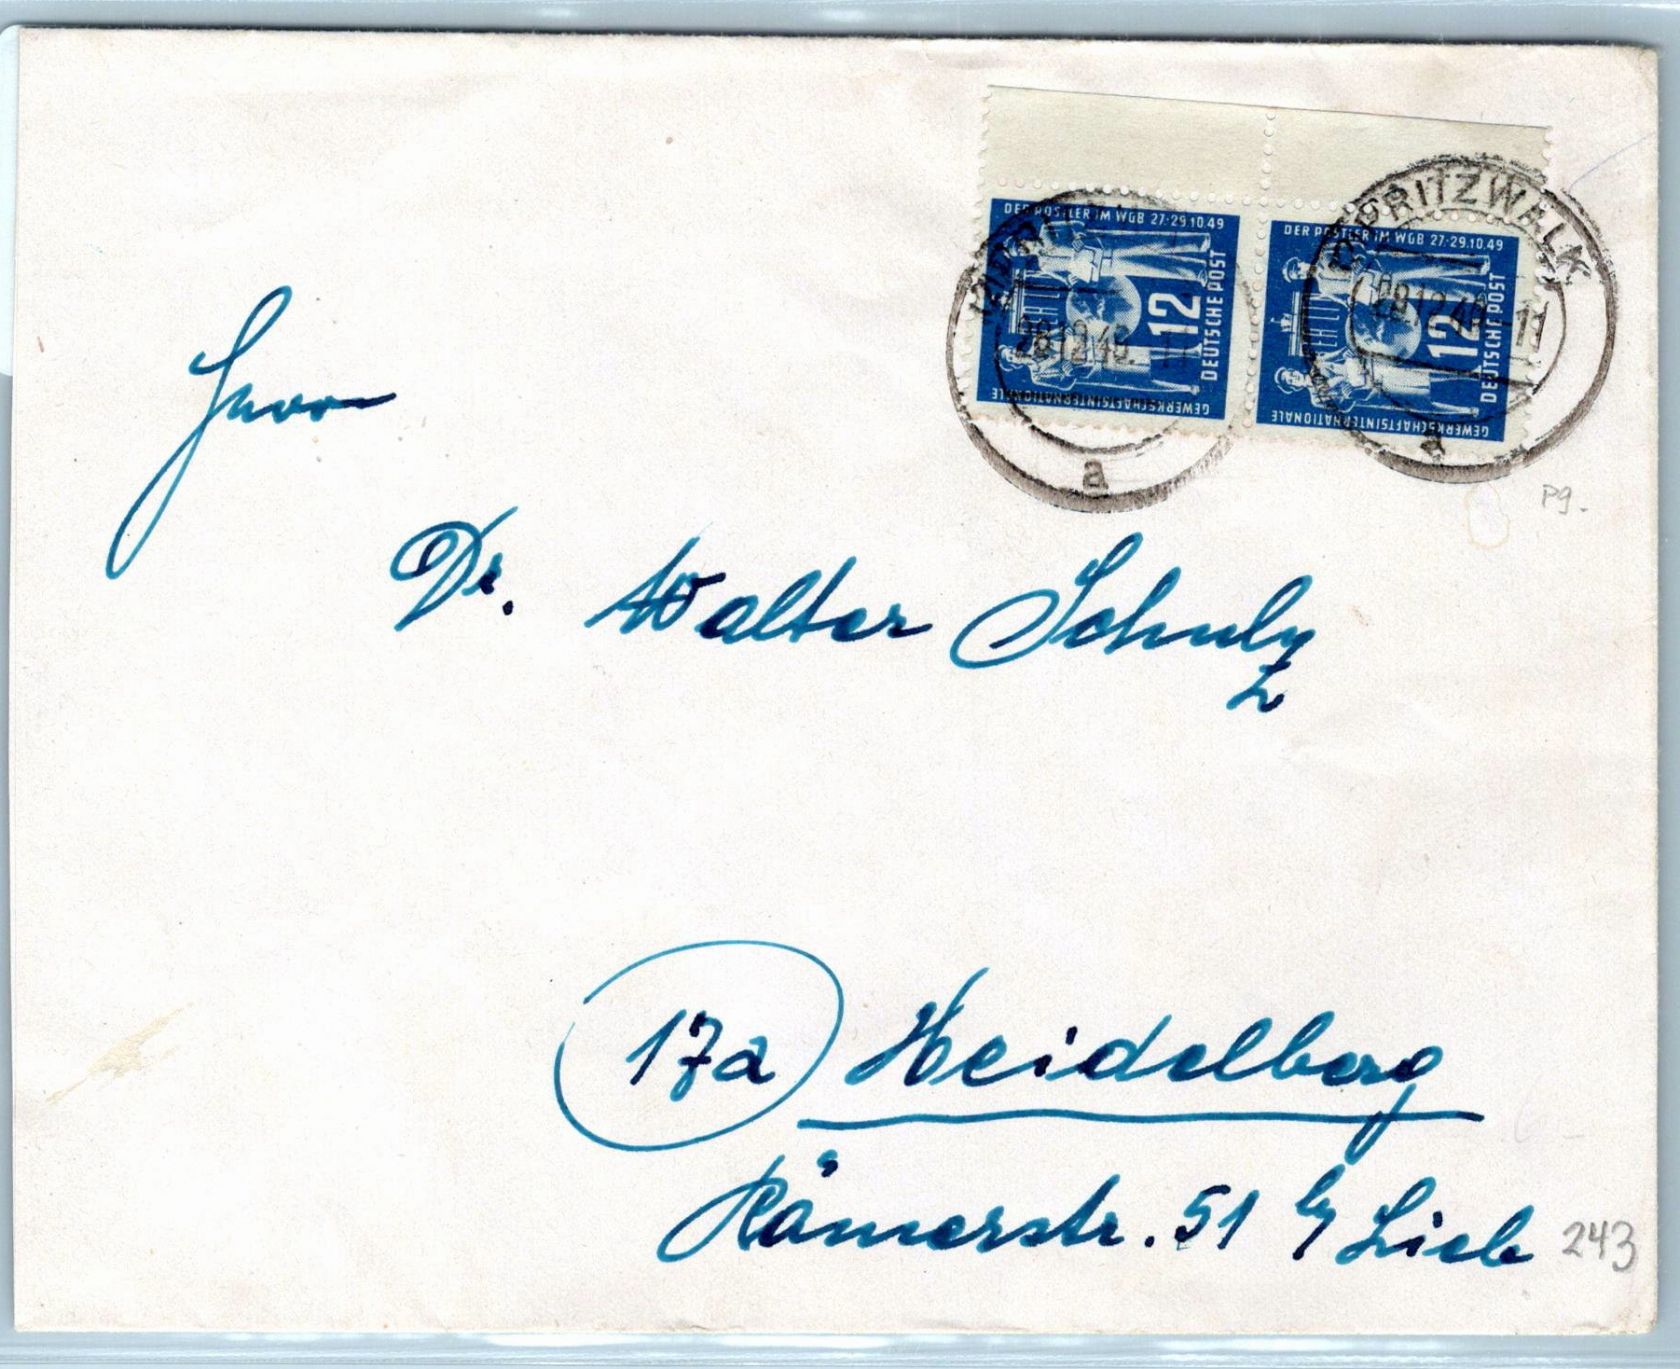 DER POSTLER IM WGB 27.-29.10.49
12
DEUTSCHE POST
GEWERKSCHAFTSINTERNATIONALE
28.12.49.-11
a
DER POSTLER IM WGB 27.-29.10.49
12
DEUTSCHE POST
GEWERKSCHAFTSINTERNATIONALE
PRITZWALK
28.12.49.-11
a
Pg.
Herrn
Dr. Walter Schulz
z
17a Heidelberg
Römerstr. 51 b/ Lieb
243